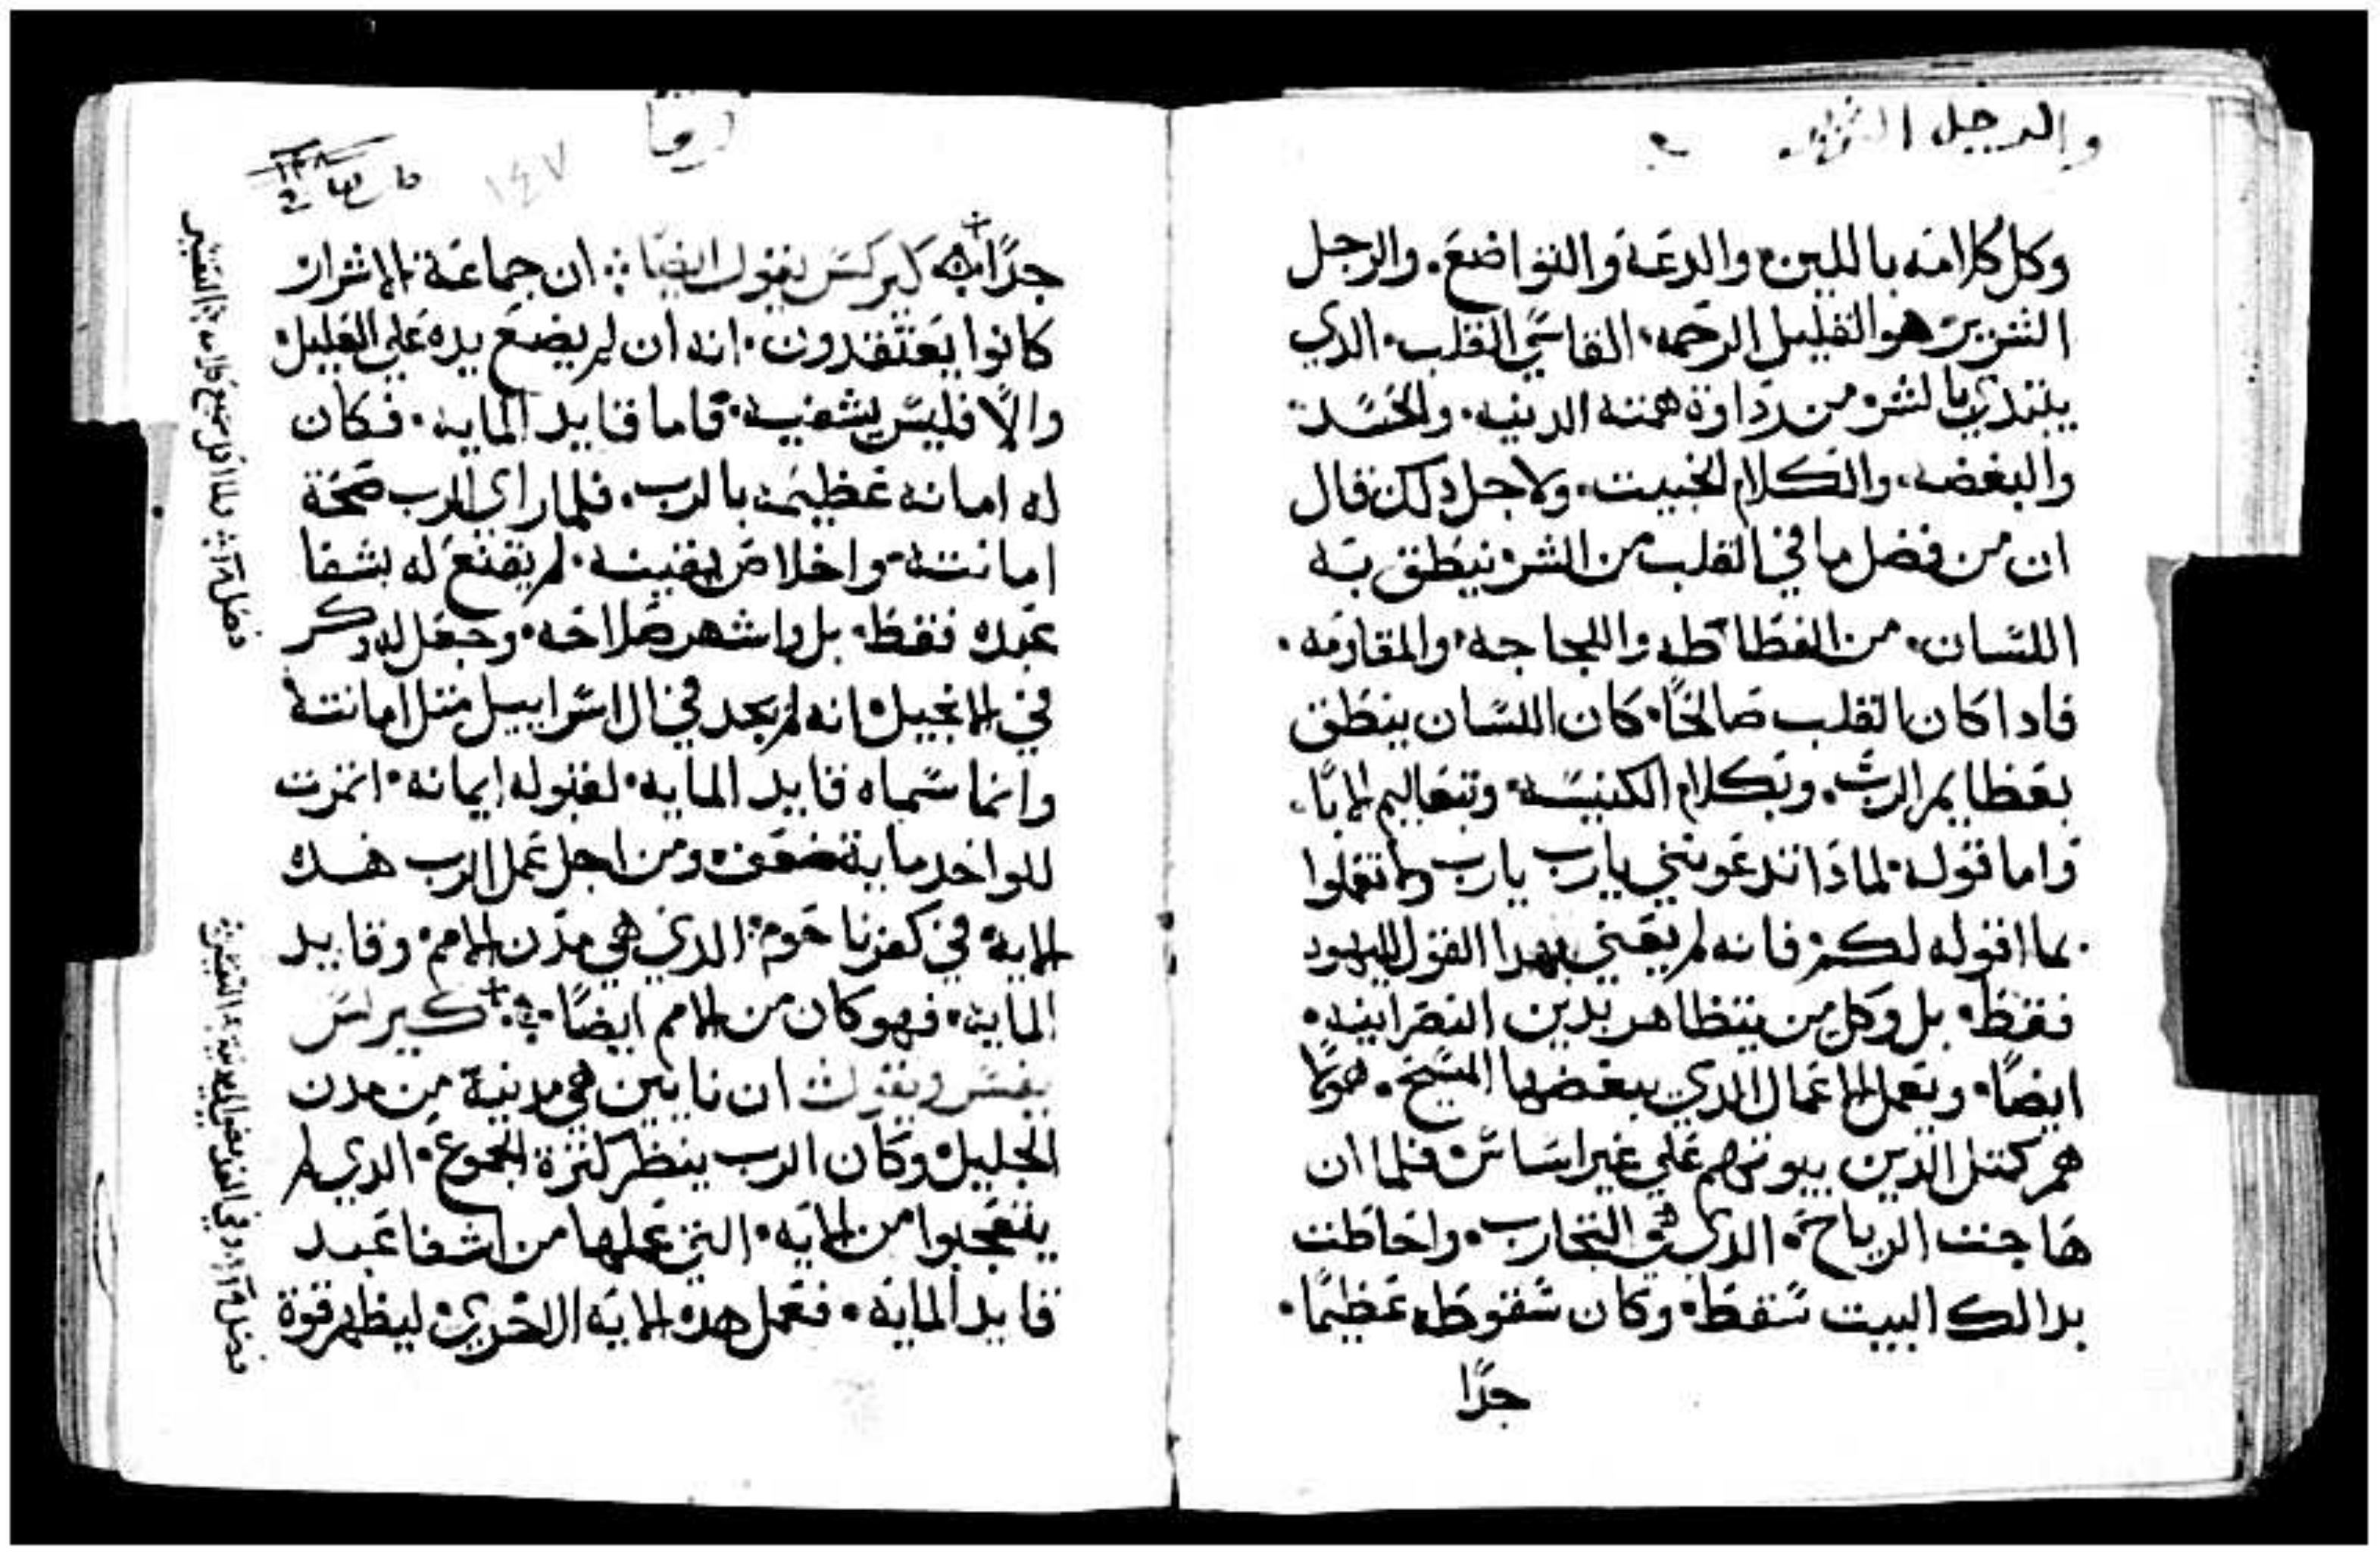 والرجل الشرير
وكل كلامه باللين والدعه والتواضع. والرجل
الشرير هو القليل الرحمه. القاسي القلب. الدي
يبتدي بالشر من رداوة همته الدنيه. والحسد
والبغضه. والكلام الخبيت. ولاجل دلك قال
ان من فضل ما في القلب من الشر ينطق به
اللسان. من الفظاظه واللجاجه والمقاومه.
فادا كان القلب صالحًا. كان اللسان ينطق
بعظايم الرب. وبكلام الكنيسه. وتعاليم الابا.
واما قوله لمادا تدعونني يارب يارب ولا تعملوا
بما اقوله لكم فانه لم يعني بهدا القول لليهود
فقط. بل وكل من يتظاهر بدين النصرانيه.
ايضًا. ويعمل الاعمال الدي يبغضها المسيح. هولا
هم كمتل الدين بيوتهم علي غير اساس فلما ان
هاجت الرياح. الدي هي التجارب. واحاطت
بدالك البيت سقط. وكان سقوطه عظيمًا.
جدًا
لوقا
١٤٧
جدًا كيرلس يقول ايضًا ان جماعة الاشرار
كانوا يعتقدون. انه ان لم يضع يده علي العليل
والا فليس يشفيه. فاما قايد المايه. فكان
له امانه عظيمه بالرب. فلما راي الرب صحة
امانته واخلاص يقينه. لم يقنع له بشفا
عبده فقط. بل واشهر صلاحه. وجعل له دكر
في الانجيل انه لم يجد في ال اسراييل متل امانته
وانما سماه قايد المايه. لقبوله ايمانه. اتمرت
للواحد ماية ضعف ومن اجل عمل الرب هده
الايه في كفرناحوم الدي هي مدن الامم. وقايد
المايه. فهو كان من الامم ايضًا. كيرلس
يفسر ويقول ان نايين هي مدينة من مدن
الجليل وكان الرب ينظر كترة الجموع. الدي لم
يتعجبوا من الايه. التي عملها من اشفا عبد
قايد المايه. فعمل هده الايه الاخري ليظهر قوة